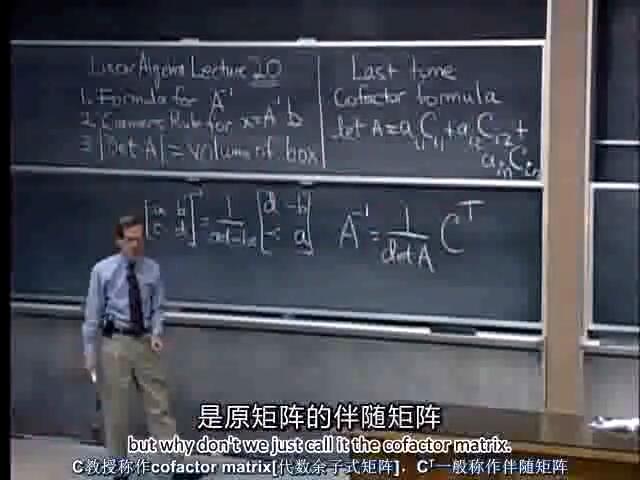 Linear Algebra Lecture 20
1. Formula for A⁻¹
2. Cramers Rule for x=A⁻¹b
3. |Det A| = volume of box
Last time
Cofactor formula
det A = a₁₁C₁₁ + a₁₂C₁₂ +
a₁ₙC₁ₙ
[a b
c d]⁻¹ = 1/(ad-bc) [d -b
-c a]
A⁻¹ = 1/det A Cᵀ
是原矩阵的伴随矩阵
but why don't we just call it the cofactor matrix.
C教授称作cofactor matrix[代数余子式矩阵]，Cᵀ一般称作伴随矩阵